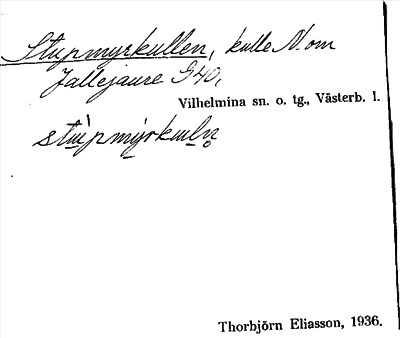 Stupmyrkullen, kulle N. om
Jallejaure G40,
Vilhelmina sn. o. tg., Västerb. l.
stu̲̍pmy̲rku̲ln̥
Thorbjörn Eliasson, 1936.